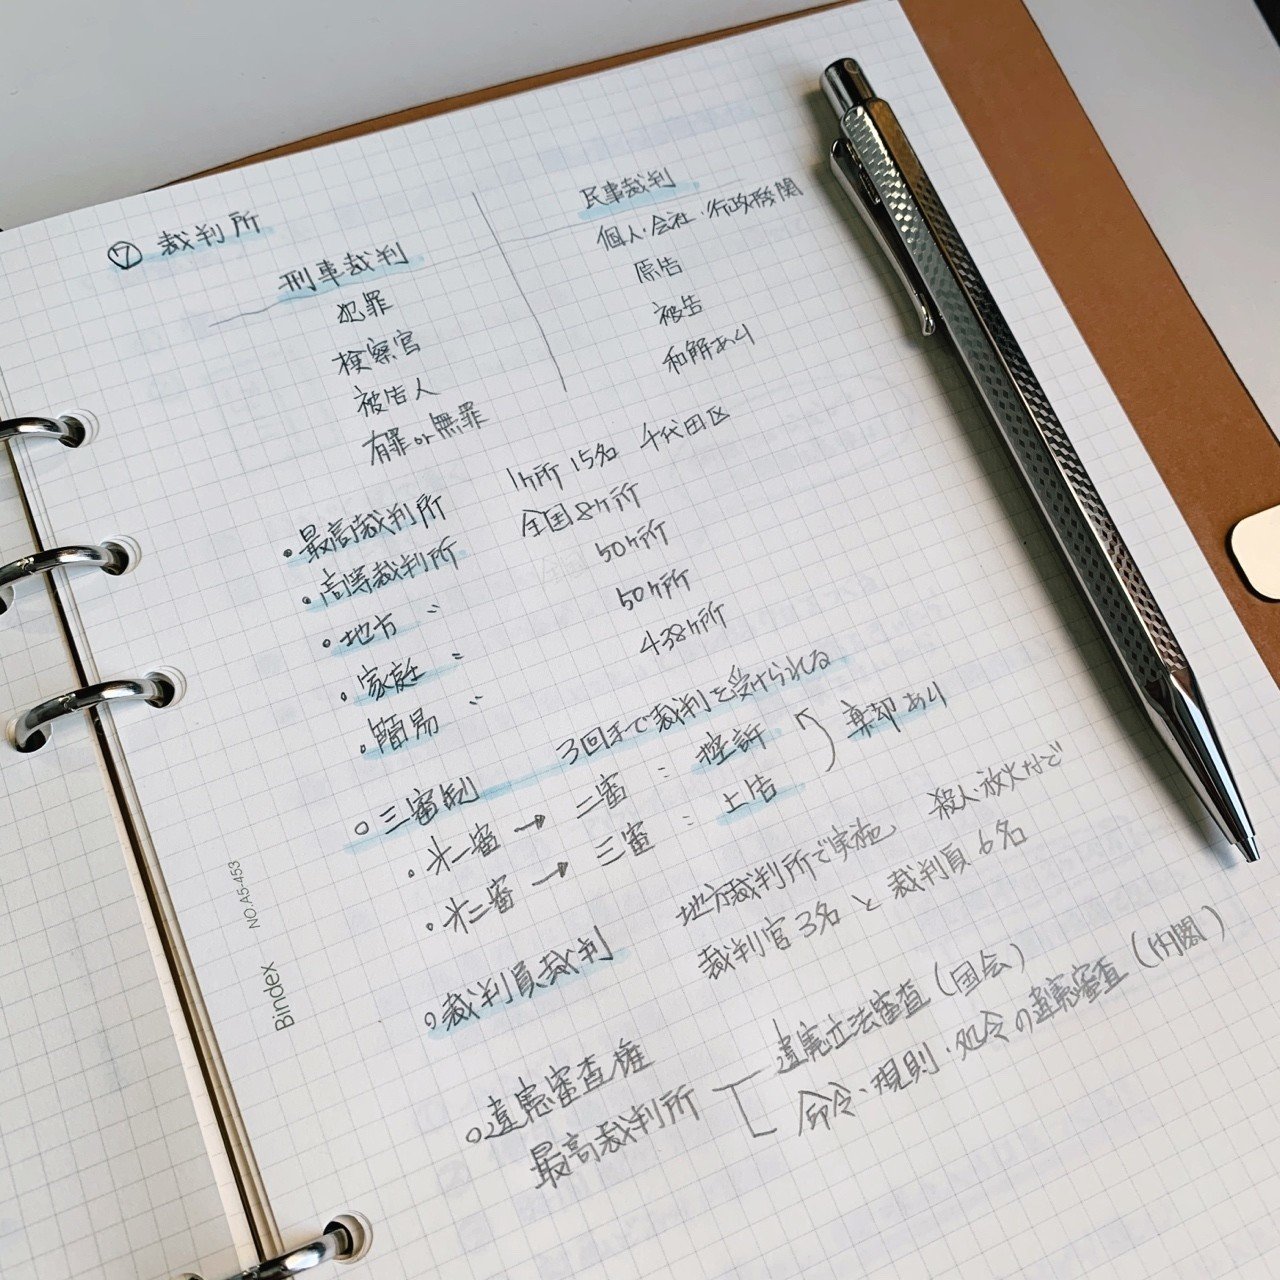 ⑦ 裁判所
刑事裁判
犯罪
検察官
被告人
有罪or無罪
民事裁判
個人・会社・行政機関
原告
被告
和解あり
・最高裁判所 1ヶ所 15名 千代田区
・高等裁判所 全国8ヶ所
・地方 〃 50ヶ所
・家庭 〃 50ヶ所
・簡易 〃 438ヶ所
○三審制 3回まで裁判を受けられる
・第一審 → 二審 : 控訴 棄却あり
・第二審 → 三審 : 上告
○裁判員裁判 地方裁判所で実施 殺人・放火など
裁判官3名と裁判員6名
○違憲審査権
最高裁判所
違憲立法審査(国会)
命令・規則・処分の違憲審査(内閣)
Bindex NO.A5-453